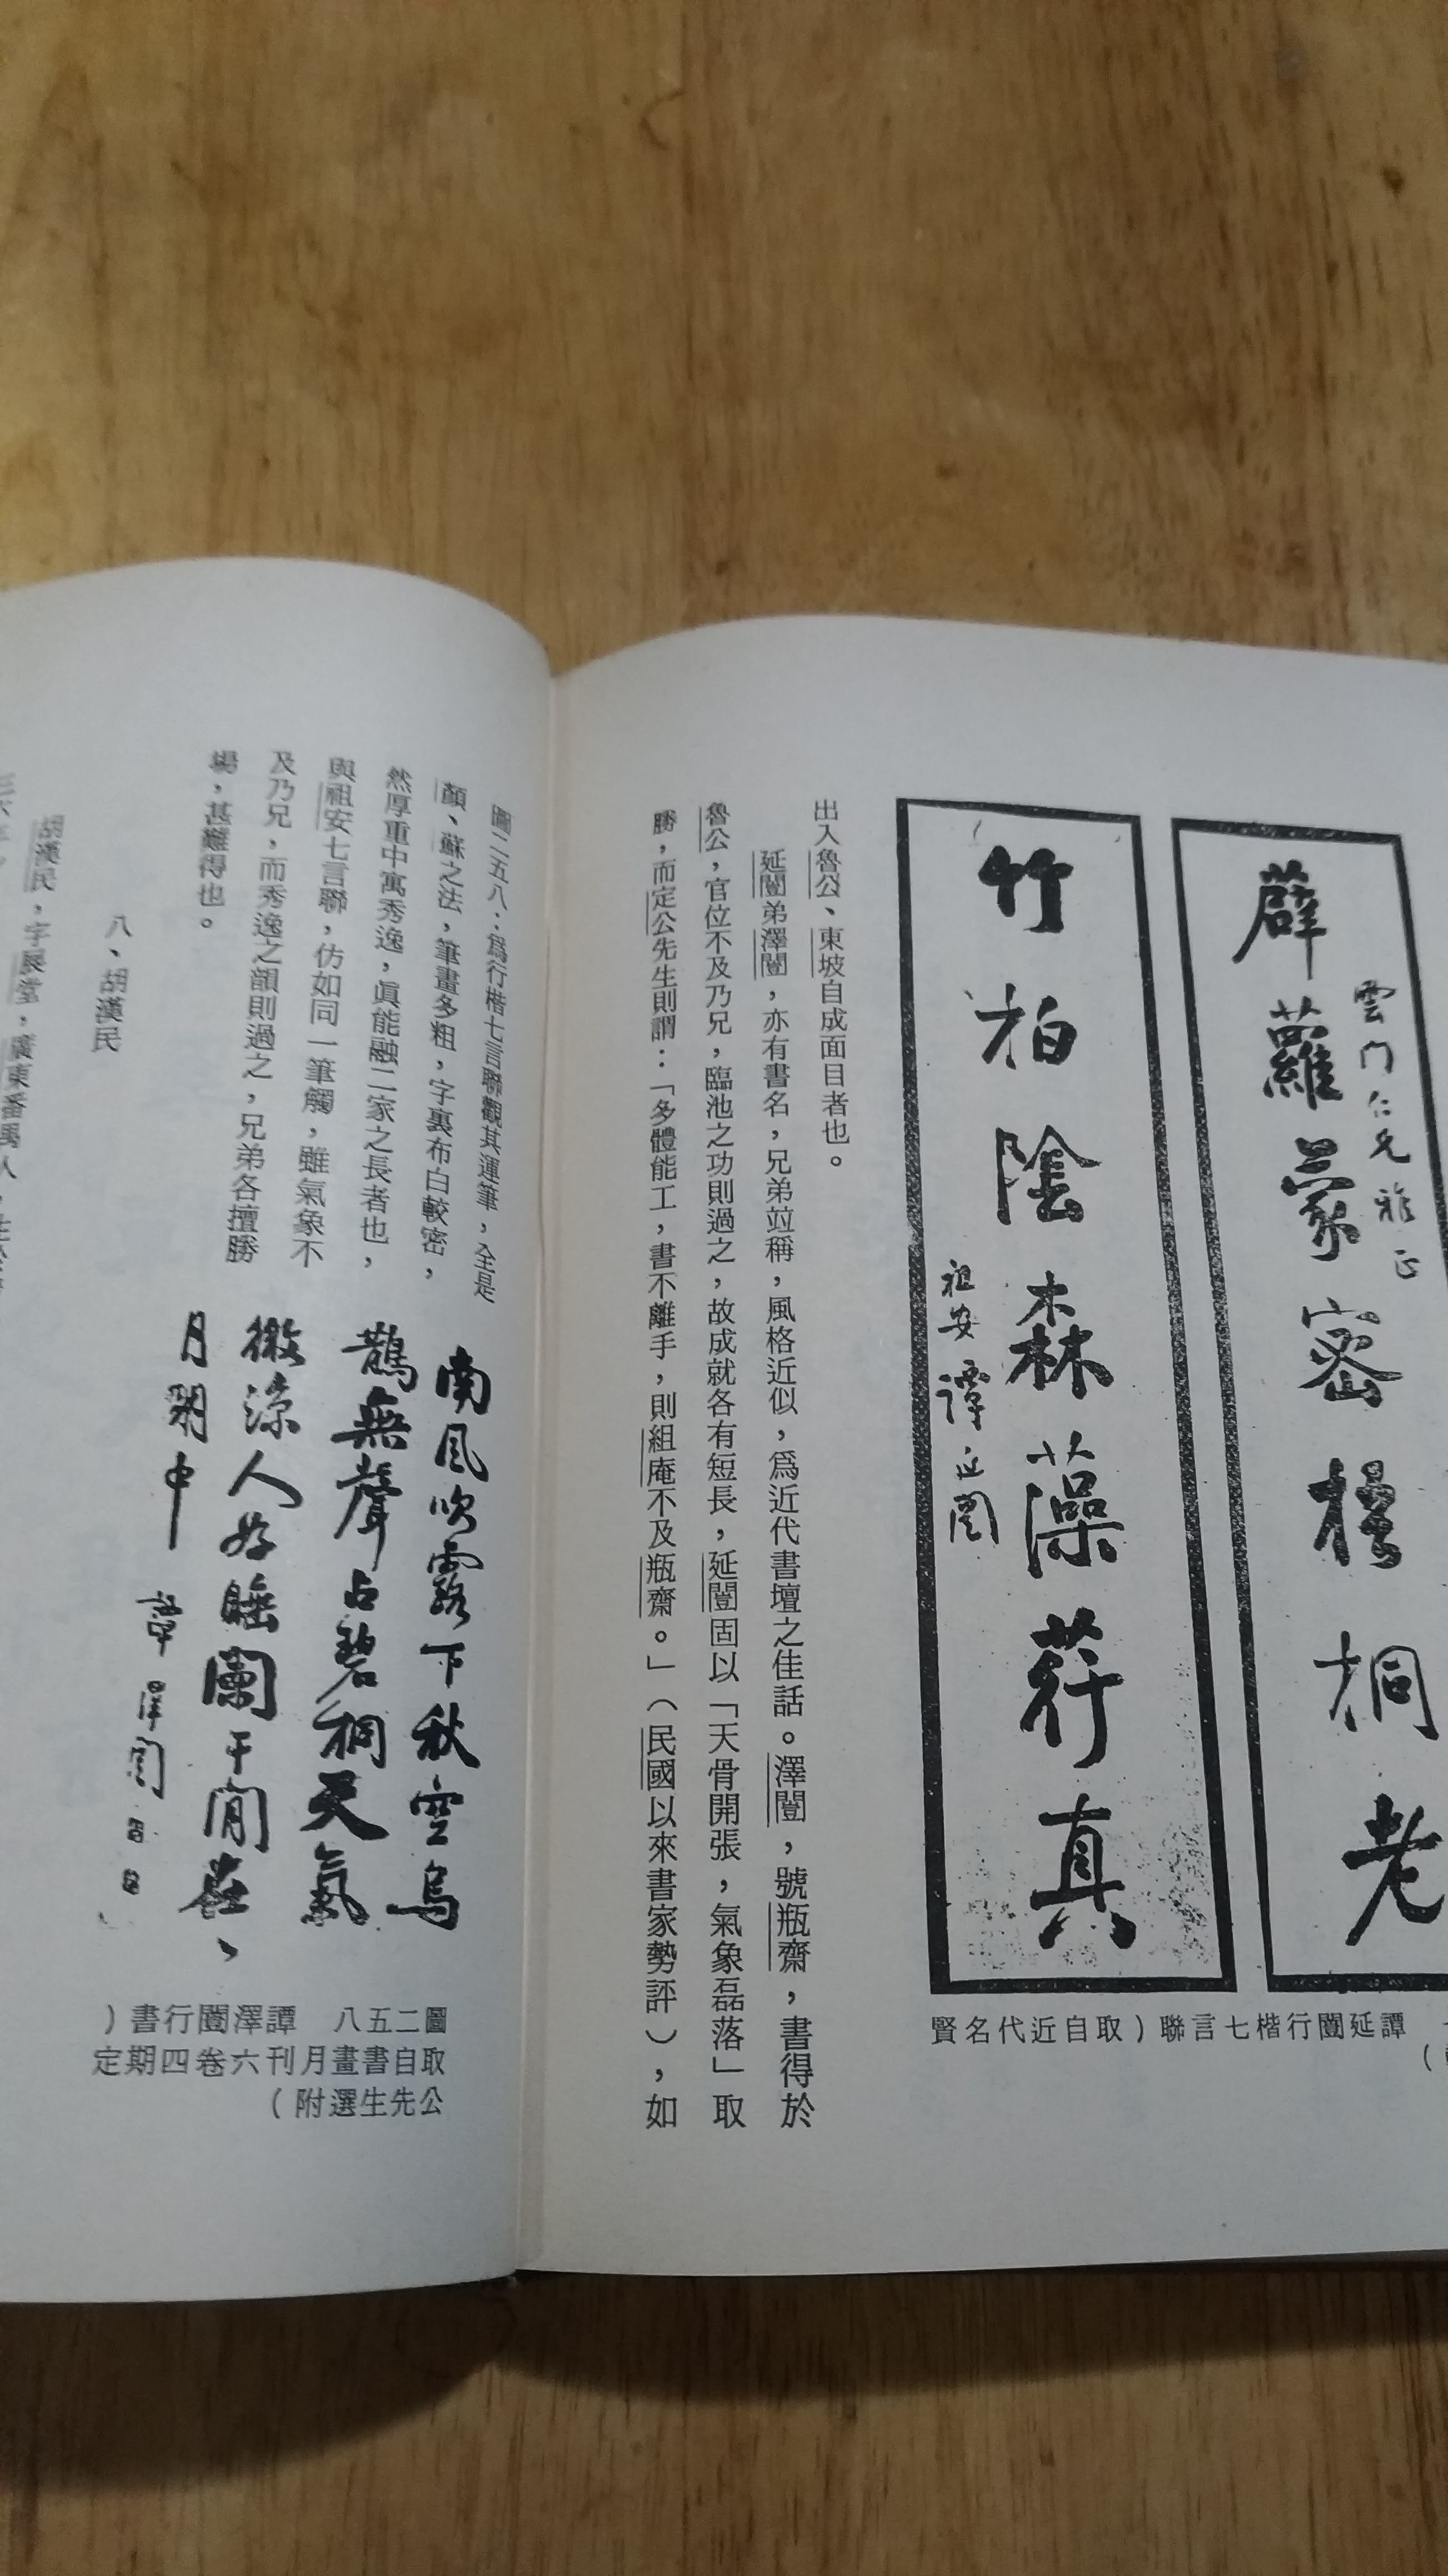 薜蘿蒙密榜桐老
雲門仁兄雅正
竹柏陰森藻荇真
祖安譚延闓
譚延闓行楷七言聯(取自近代名賢
出入魯公、東坡自成面目者也。
延闓弟澤闓,亦有書名,兄弟竝稱,風格近似,爲近代書壇之佳話。澤闓,號瓶齋,書得於
魯公,官位不及乃兄,臨池之功則過之,故成就各有短長,延闓固以「天骨開張,氣象磊落」取
勝,而定公先生則謂:「多體能工,書不離手,則組庵不及瓶齋。」(民國以來書家勢評),如
圖二五八:爲行楷七言聯觀其運筆,全是
顏、蘇之法,筆畫多粗,字裏布白較密,
然厚重中寓秀逸,眞能融二家之長者也,
與祖安七言聯,仿如同一筆觸,雖氣象不
及乃兄,而秀逸之韻則過之,兄弟各擅勝
場,甚難得也。
南風吹露下秋空烏
鵲無聲占碧桐天氣
微涼人好睡闌干閒在
月明中
譚澤闓
圖二五八 譚澤闓行書(
取自書畫月刊六卷四期定
公先生選附)
八、胡漢民
胡漢民,字展堂,廣東番禺人,